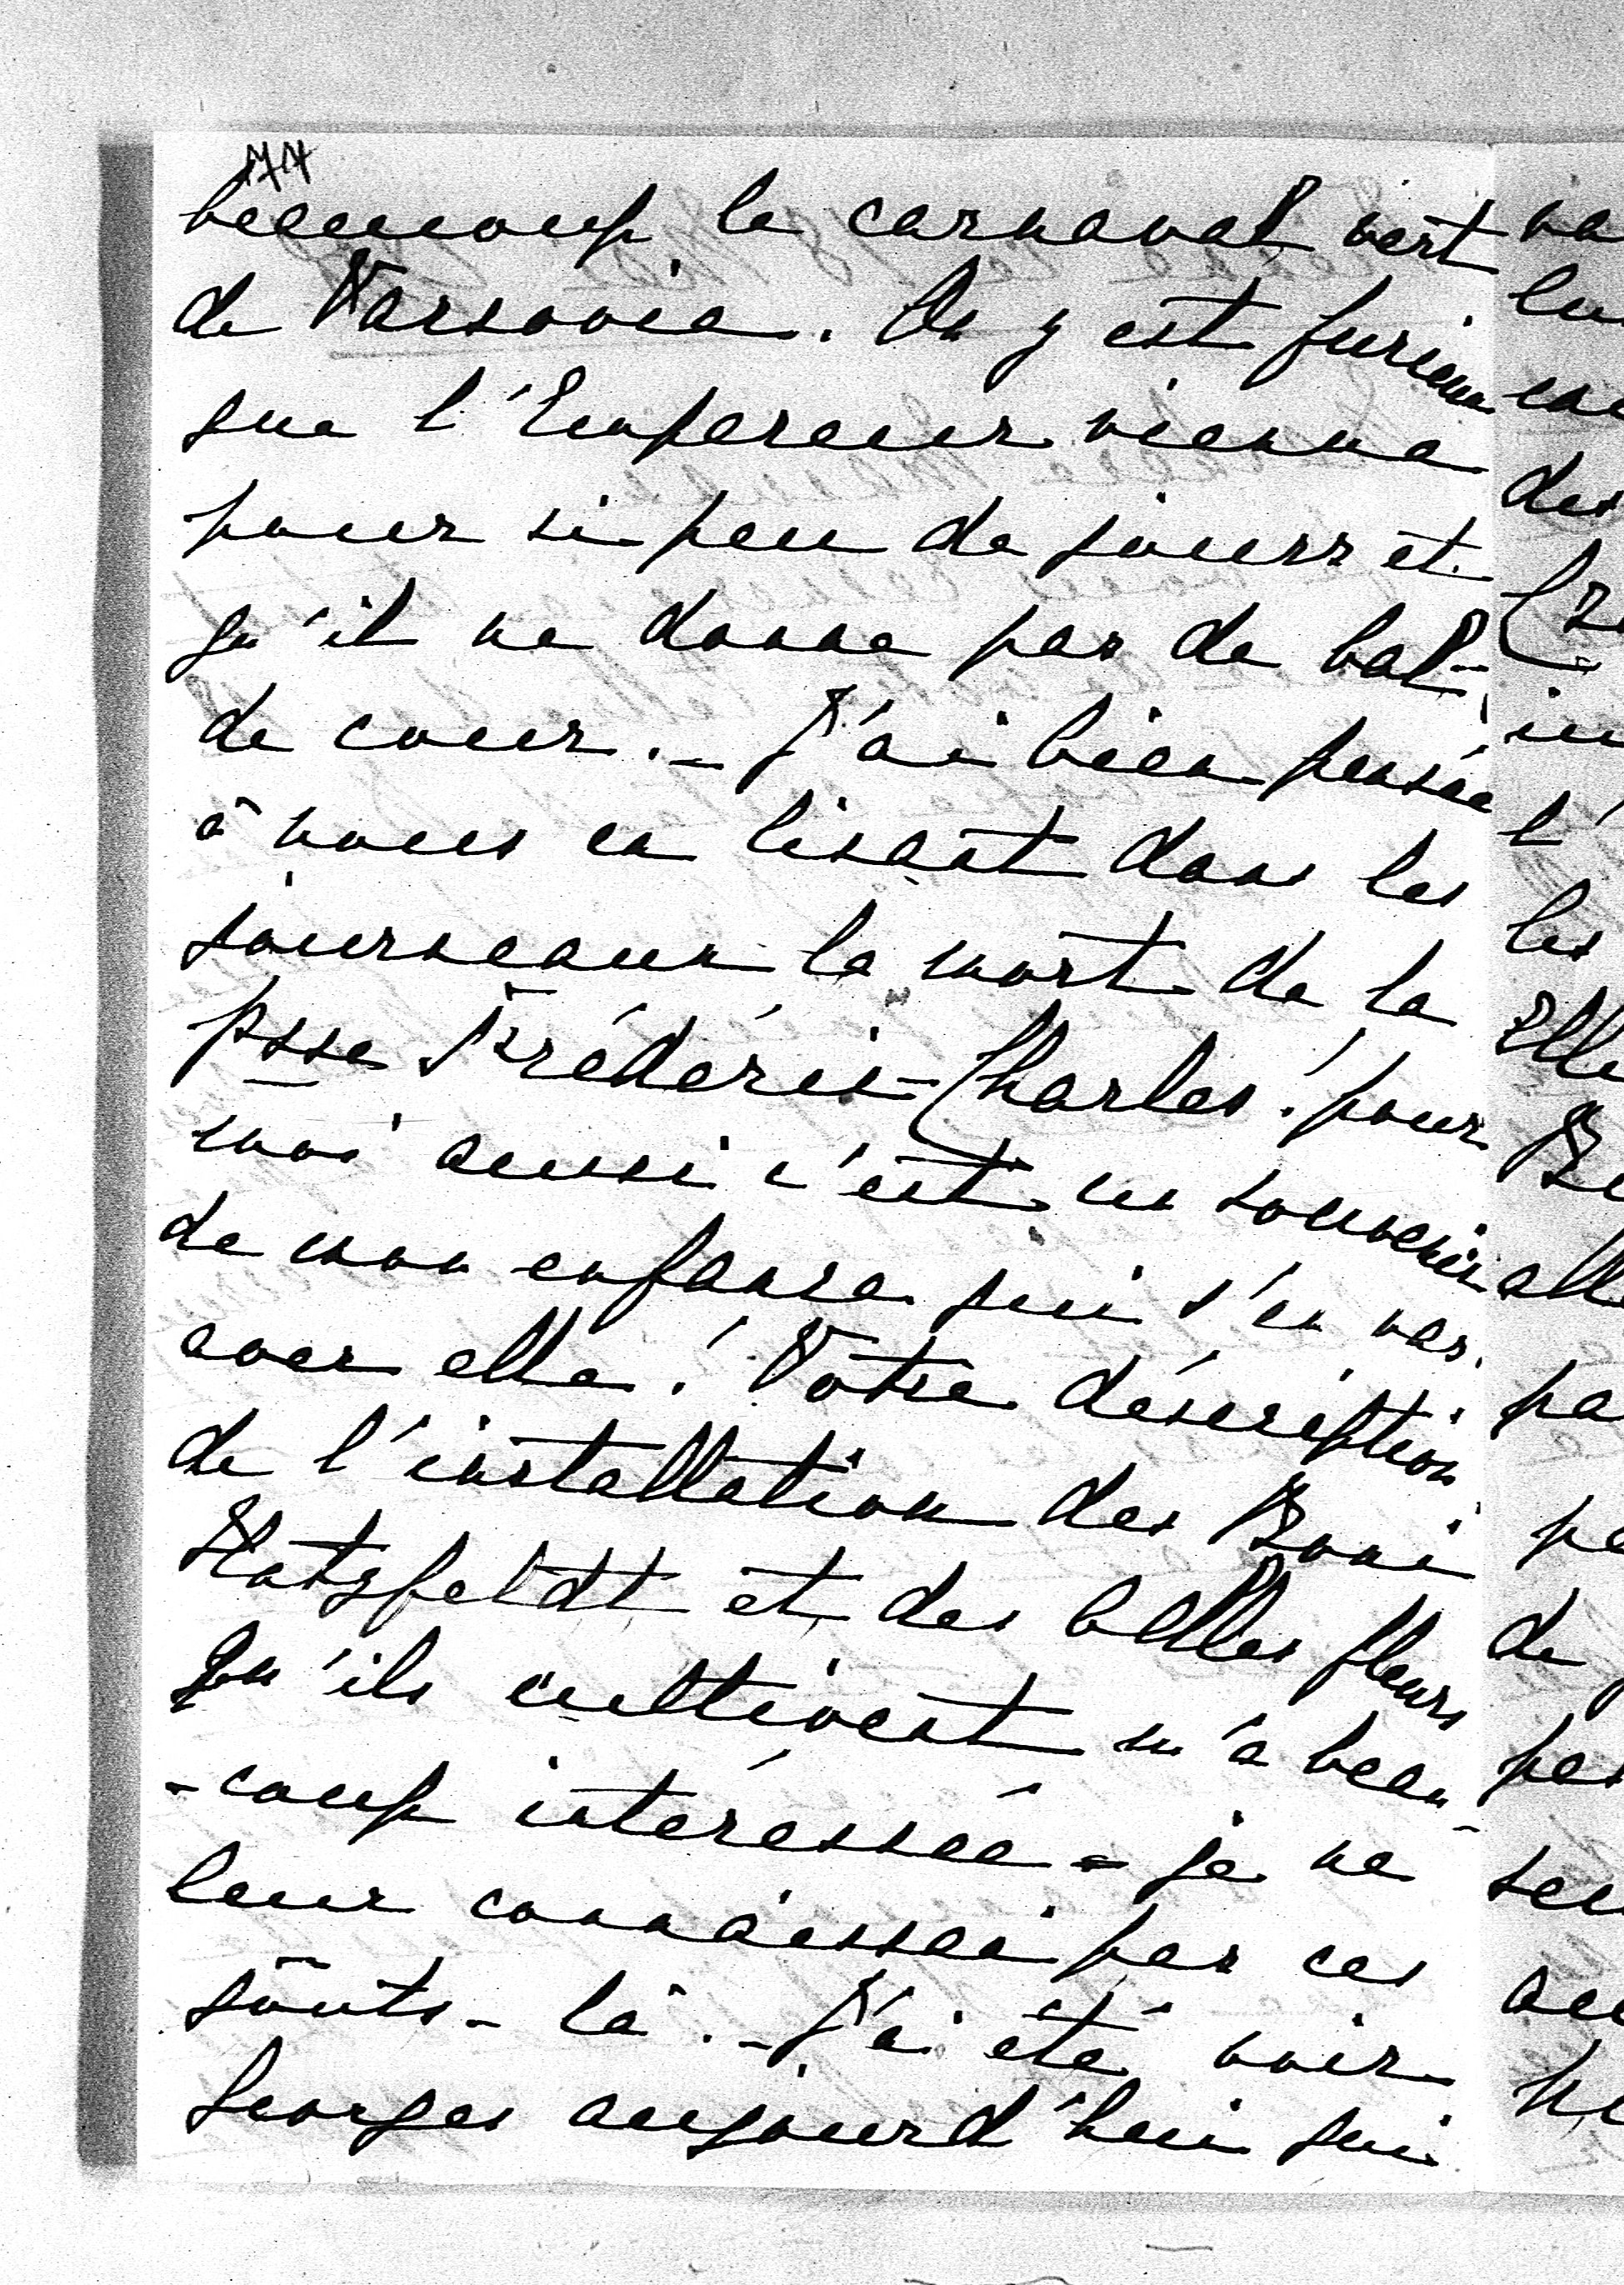 beaucoup le carnaval vert
de Varsovie. On y est furieux
que l'Empereur vienne
pour si peu de jours et
qu'il ne donne pas de bal
de cour. – J'ai bien pensée
à vous en lisant dans les
journeaux la mort de la
Psse Fréderic-Charles! pour
moi aussi c'est un souvenir
de mon enfance qui s'en va
avec elle! Votre déscription
de l'installation des Boni
Hatzfeldt et des belles fleurs
qu'ils cultivent m'a beau-
-coup intéressée – je ne
leur connaissai pas ces
goûts-là. – J'ai été voir
Georges aujourd'hui qui
des
l'
les
de